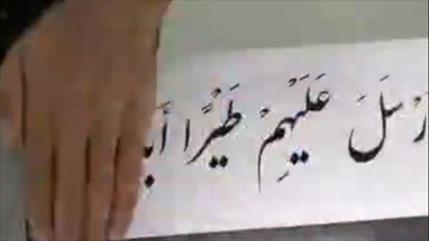 رْسَلَ عَلَيْهِمْ طَيْرًا أَبَا